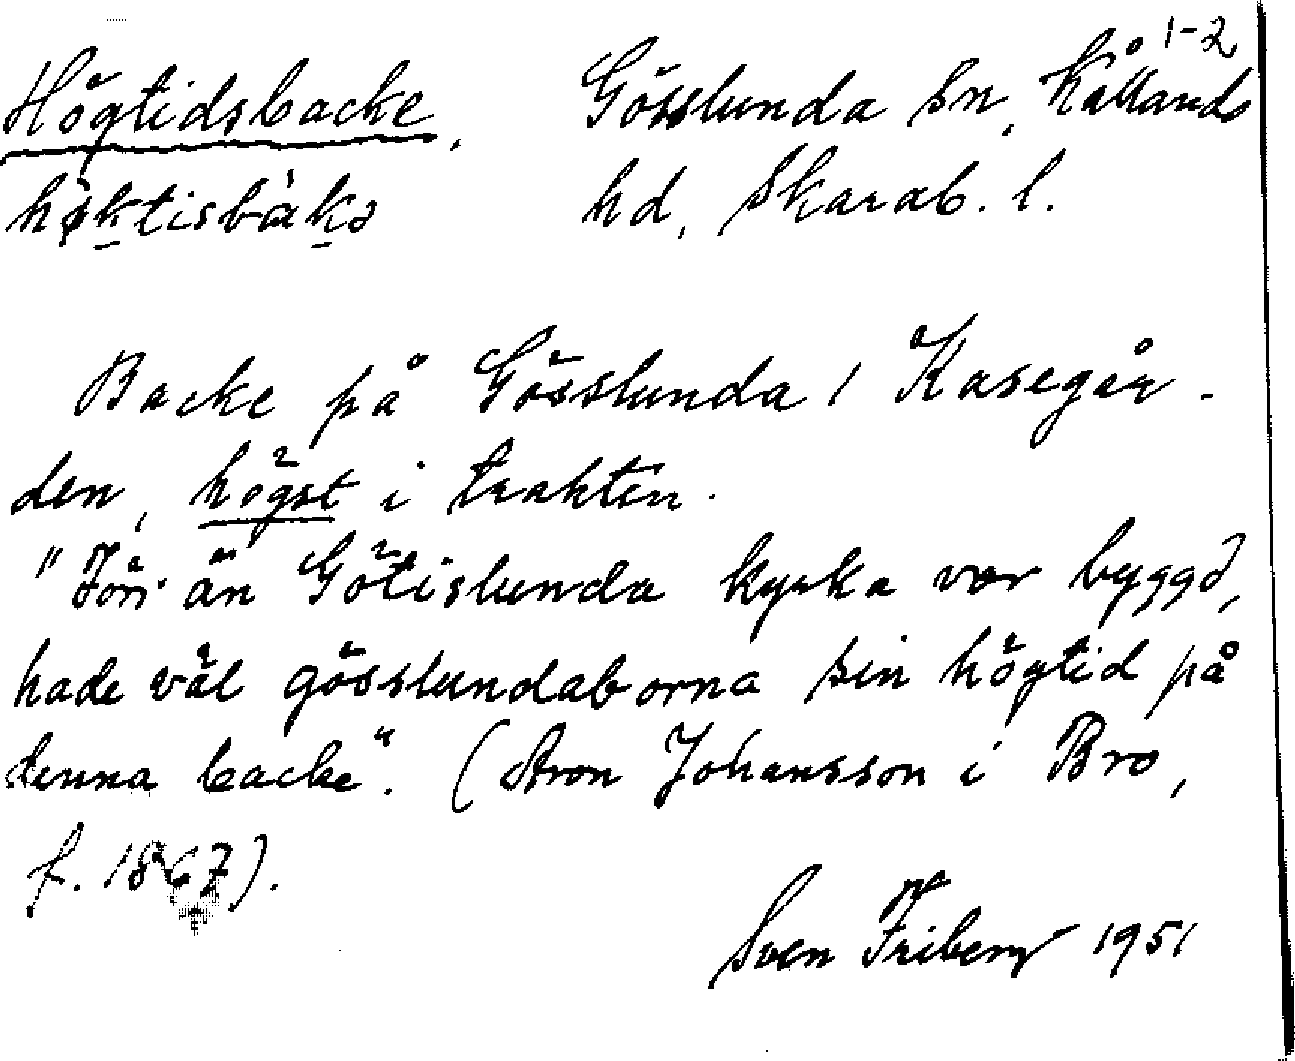 1-2
Högtidsbacke, Gösslunda sn, Kållands
höktisbàkə hd, Skarab. l.
Backe på Gösslunda 1 Kasegår-
den, högst i trakten.
"Förr än Götislunda kyrka var byggd,
hade väl gösslundaborna sin högtid på
denna backe". (Aron Johansson i Bro,
f. 1867).
Sven Friberg 1951